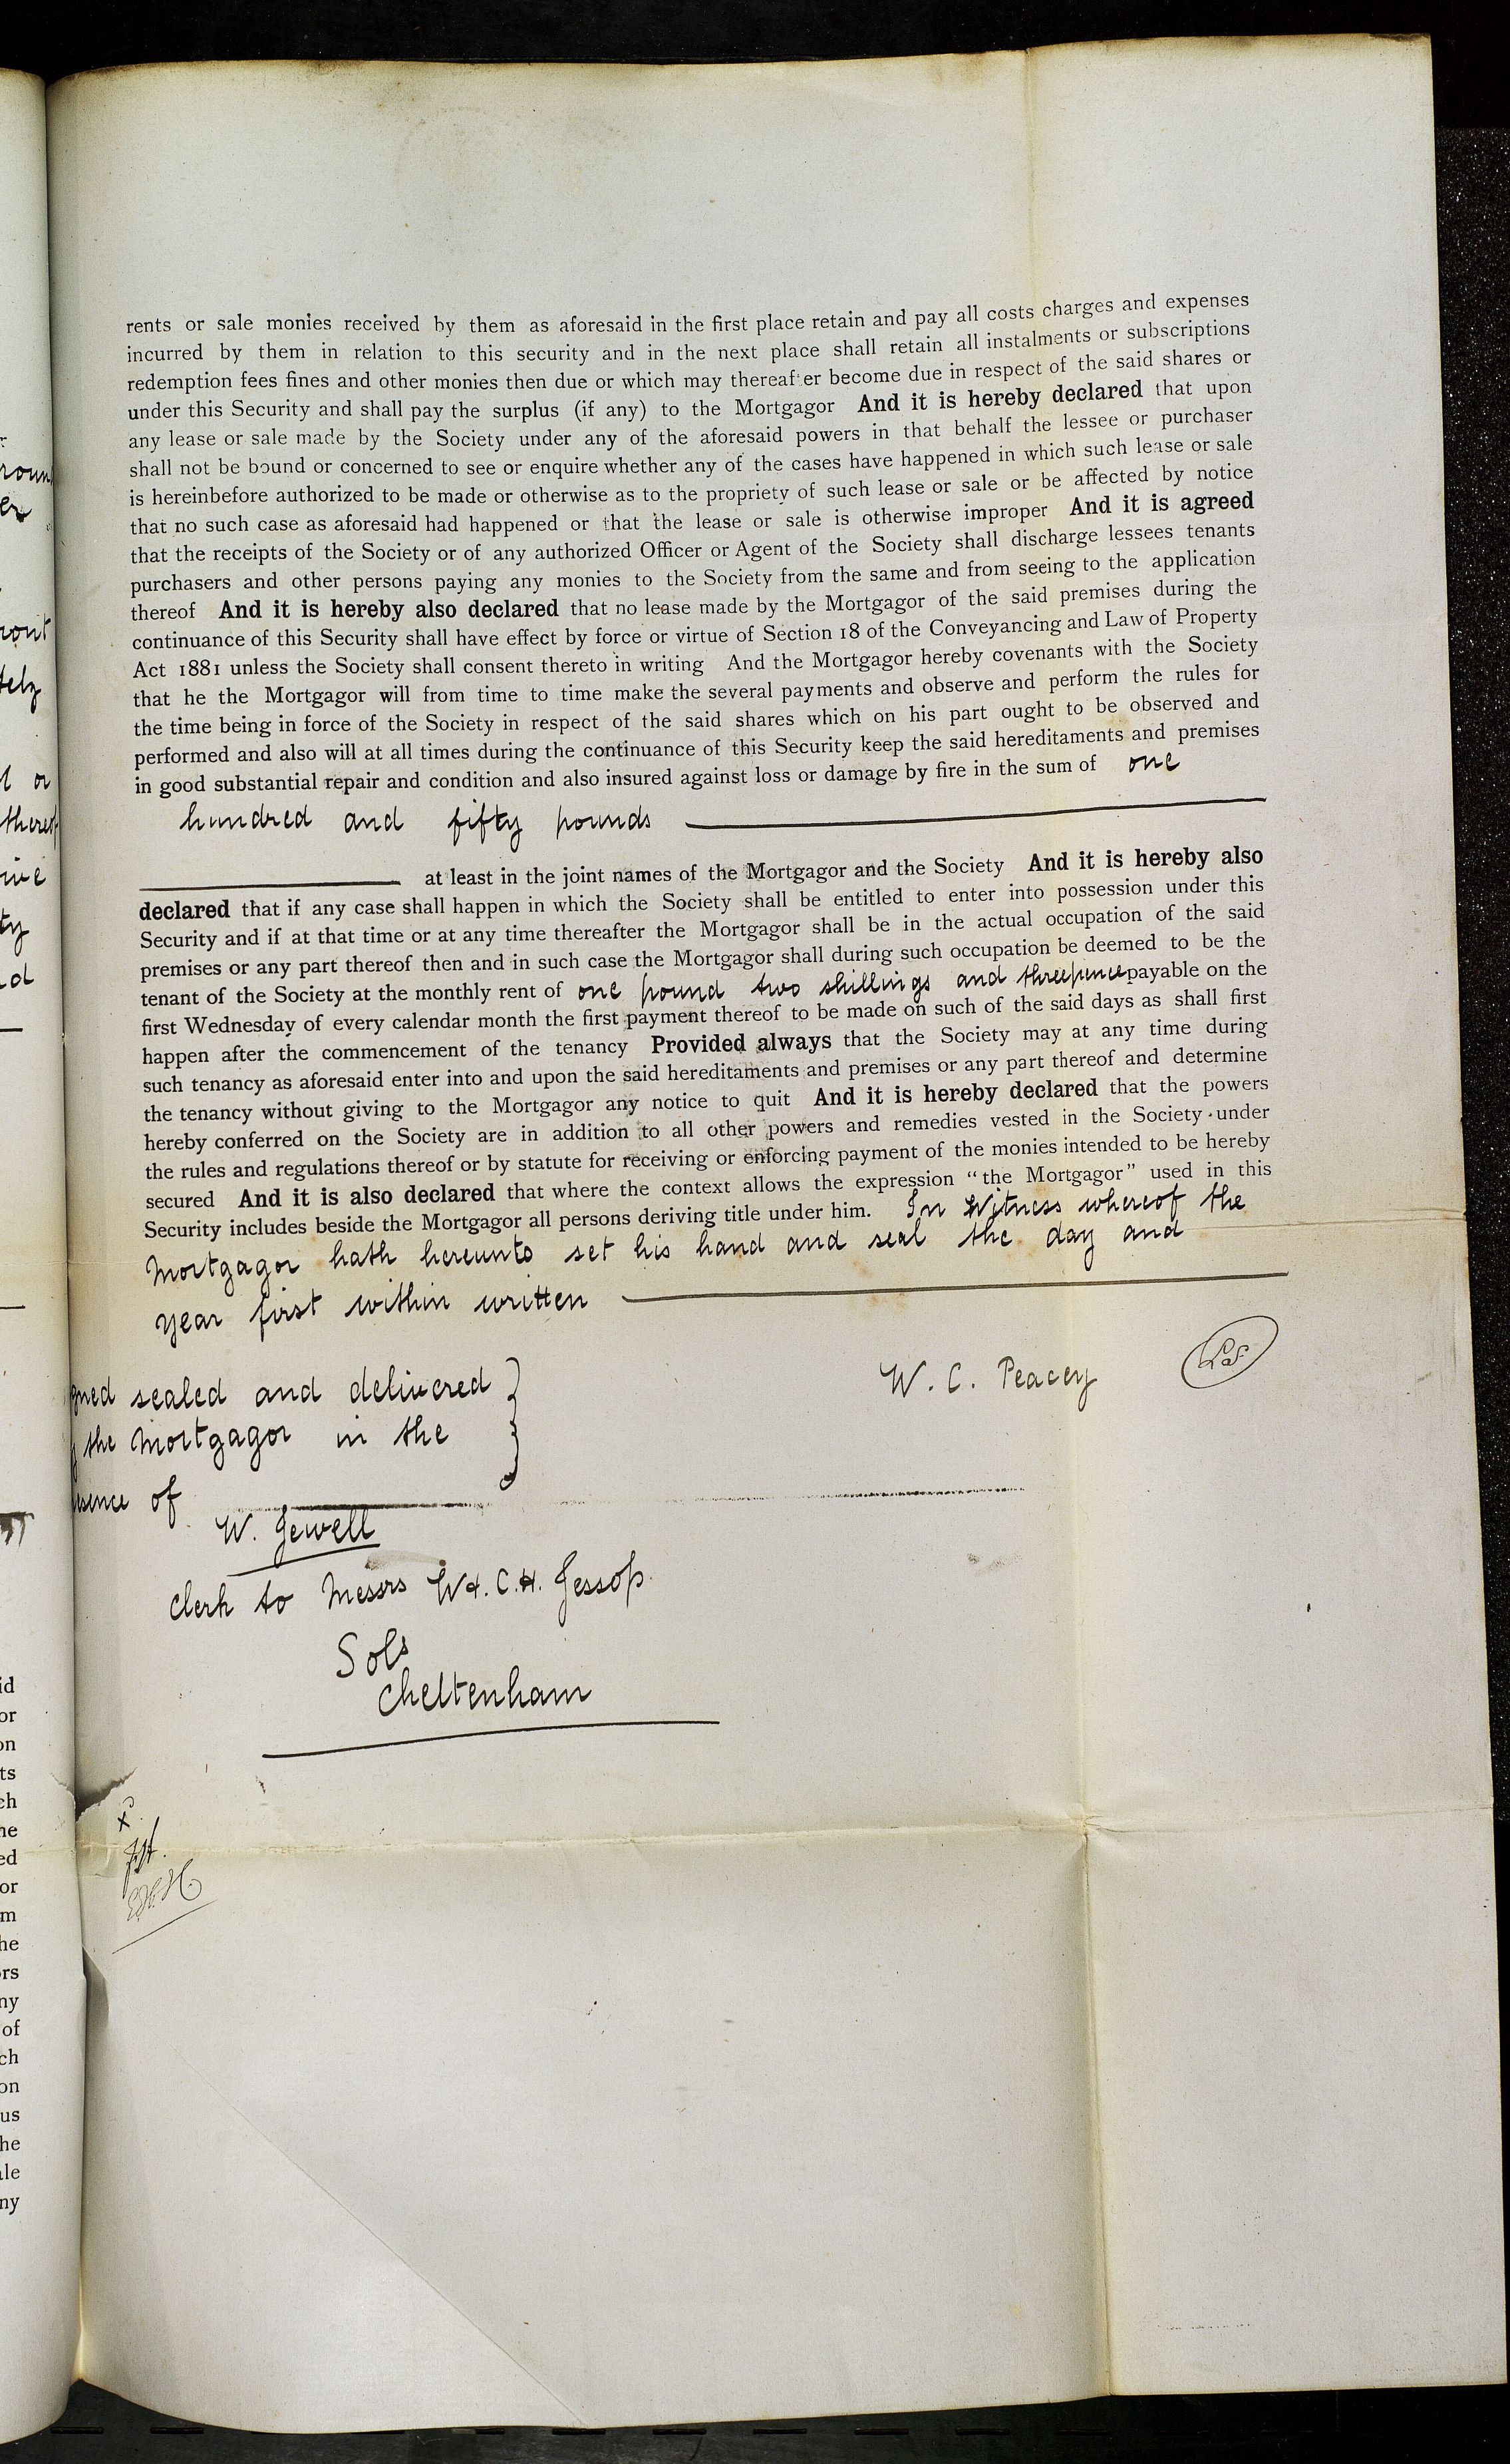 rents or sale monies received by them as aforesaid in the first place retain and pay all costs charges and expenses
incurred by them in relation to this security and in the next place shall retain all instalments or subscriptions
redemption fees fines and other monies then due or which may thereafter become due in respect of the said shares or
under this Security and shall pay the surplus (if any) to the Mortgagor And it is hereby declared that upon
any lease or sale made by the Society under any of the aforesaid powers in that behalf the lessee or purchaser
shall not be bound or concerned to see or enquire whether any of the cases have happened in which such lease or sale
is hereinbefore authorized to be made or otherwise as to the propriety of such lease or sale or be affected by notice
that no such case as aforesaid had happened or that the lease or sale is otherwise improper And it is agreed
that the receipts of the Society or of any authorized Officer or Agent of the Society shall discharge lessees tenants
purchasers and other persons paying any monies to the Society from the same and from seeing to the application
thereof And it is hereby also declared that no lease made by the Mortgagor of the said premises during the
continuance of this Security shall have effect by force or virtue of Section 18 of the Conveyancing and Law of Property
Act 1881 unless the Society shall consent thereto in writing And the Mortgagor hereby covenants with the Society
that he the Mortgagor will from time to time make the several payments and observe and perform the rules for
the time being in force of the Society in respect of the said shares which on his part ought to be observed and
performed and also will at all times during the continuance of this Security keep the said hereditaments and premises
in good substantial repair and condition and also insured against loss or damage by fire in the sum of one
hundred and fifty pounds
at least in the joint names of the Mortgagor and the Society And it is hereby also
declared that if any case shall happen in which the Society shall be entitled to enter into possession under this
Security and if at that time or at any time thereafter the Mortgagor shall be in the actual occupation of the said
premises or any part thereof then and in such case the Mortgagor shall during such occupation be deemed to be the
tenant of the Society at the monthly rent of one pound two shillings and threepence payable on the
first Wednesday of every calendar month the first payment thereof to be made on such of the said days as shall first
happen after the commencement of the tenancy Provided always that the Society may at any time during
such tenancy as aforesaid enter into and upon the said hereditaments and premises or any part thereof and determine
the tenancy without giving to the Mortgagor any notice to quit And it is hereby declared that the powers
hereby conferred on the Society are in addition to all other powers and remedies vested in the Society under
the rules and regulations thereof or by statute for receiving or enforcing payment of the monies intended to be hereby
secured And it is also declared that where the context allows the expression "the Mortgagor" used in this
Security includes beside the Mortgagor all persons deriving title under him. In Witness whereof the
Mortgagor hath hereunto set his hand and seal the day and
year first within written
W. C. Peacey LS
gned sealed and delivered
the Mortgagor in the
sence of
W. Jewell
Clerk to Messrs W. & C. H. Jessop
Sols
Cheltenham